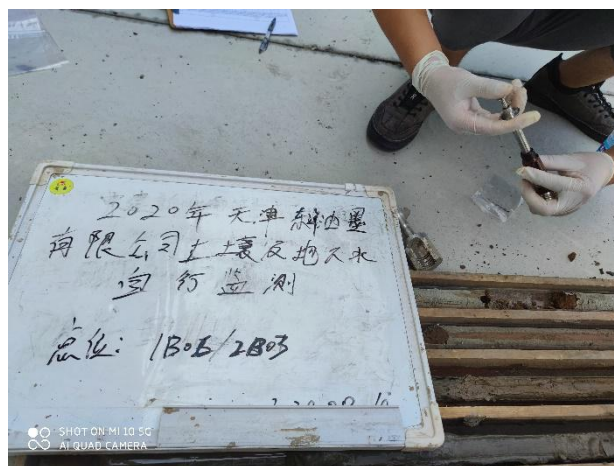 2020年 天津东洋油墨
有限公司土壤及地下水
自行监测
点位: 1B05/2B03
SHOT ON MI 10 5G
AI QUAD CAMERA